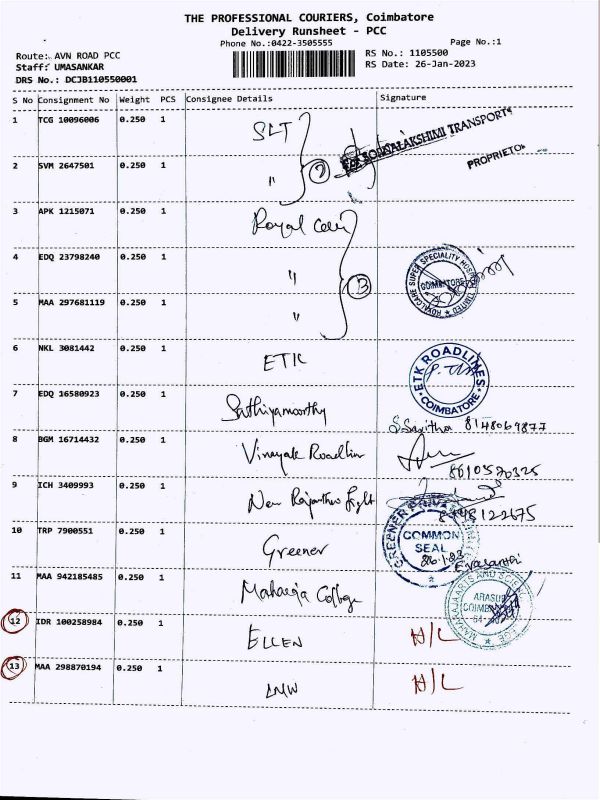 THE PROFESSIONAL COURIERS, Coimbatore
Delivery Runsheet - PCC
Phone No.:0422-3505555
Page No.:1
Route: AVN ROAD PCC
RS No.: 1105500
Staff: UMASANKAR
RS Date: 26-Jan-2023
DRS No.: DCJB110550001
S No Consignment No Weight PCS Consignee Details Signature
1 TCG 10096006 0.250 1 SLT
SORNALAKSHIMI TRANSPORTS
PROPRIETOR
2 SVM 2647501 0.250 1 " 2
3 APK 1215071 0.250 1 Royal Care
4 EDQ 23798240 0.250 1 "
ROYALCARE SUPER SPECIALITY HOSPITAL LIMITED
COIMBATORE
5 MAA 297681119 0.250 1 " 3
6 NKL 3081442 0.250 1 ETK
ETK ROADLINES
COIMBATORE
7 EDQ 16580923 0.250 1 Sathiyamoorthy
S. Savitha 8148069877
8 BGM 16714432 0.250 1 Vinayak Roadlin
8610520325
9 ICH 3409993 0.250 1 New Rajasthan Fight
8448122675
10 TRP 7900551 0.250 1 Greener
GREENER PRIVATE LIMITED
COMMON
SEAL
26.1.23
E. Vasanthi
11 MAA 942185485 0.250 1 Maharaja College
MAHARAJA ARTS AND SCIENCE COLLEGE
ARASUR
COIMBATORE
12 IDR 100258984 0.250 1 ELLEN H/L
13 MAA 298870194 0.250 1 LMW H/L